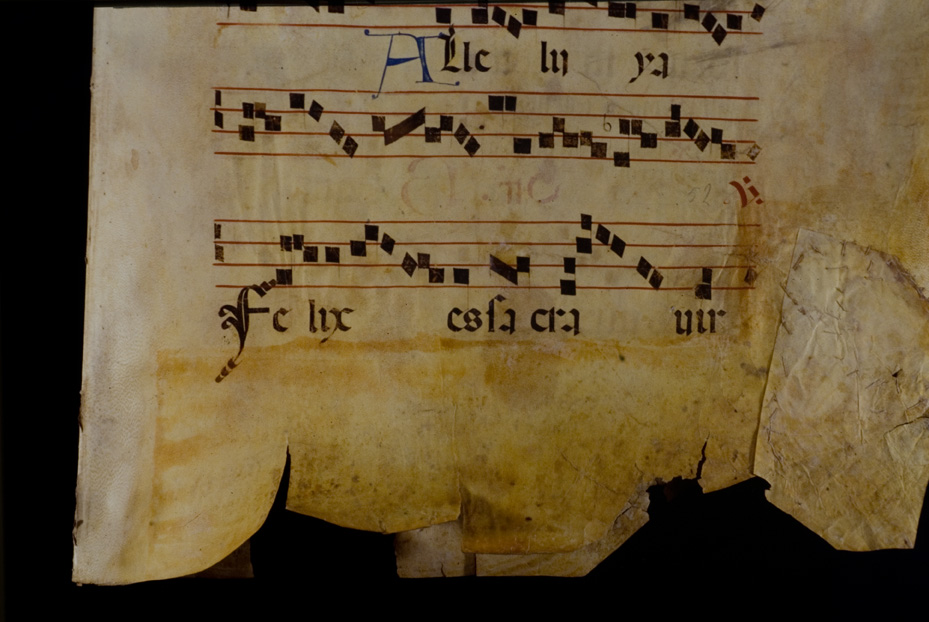 Alle lu ya
℣.
Fe lix es sa cra uir